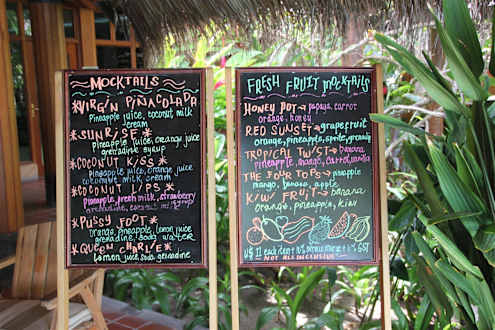 MOCKTAILS
*VIRGIN PINACOLADA
Pineapple juice, coconut milk
cream
*SUNRISE*
Pineapple juice, orange juice
grenadine syrup
*COCONUT KISS*
Pineapple juice, orange juice
coconut milk cream
*COCONUT LIPS*
Pineapple, fresh milk, strawberry
*PUSSY FOOT*
Orange, pineapple, lemon juice
grenadine, soda water
*QUEEN CHARLIE*
Lemon juice, soda grenadine
FRESH FRUIT MOCKTAILS
HONEY POT→ papaya, carrot
orange, honey
RED SUNSET→ grapefruit
orange, pineapple, sprite, grenadine
syrup
TROPICAL TWIST→ banana
pineapple, mango, carrot, vanilla
THE FOUR TOPS→ pineapple
mango, banana, apple
KIWI FRUIT→ banana
orange, pineapple, kiwi
U$ 11 each (net) + 10% service charge + 6% GST
NOT ALL INCLUSIVE